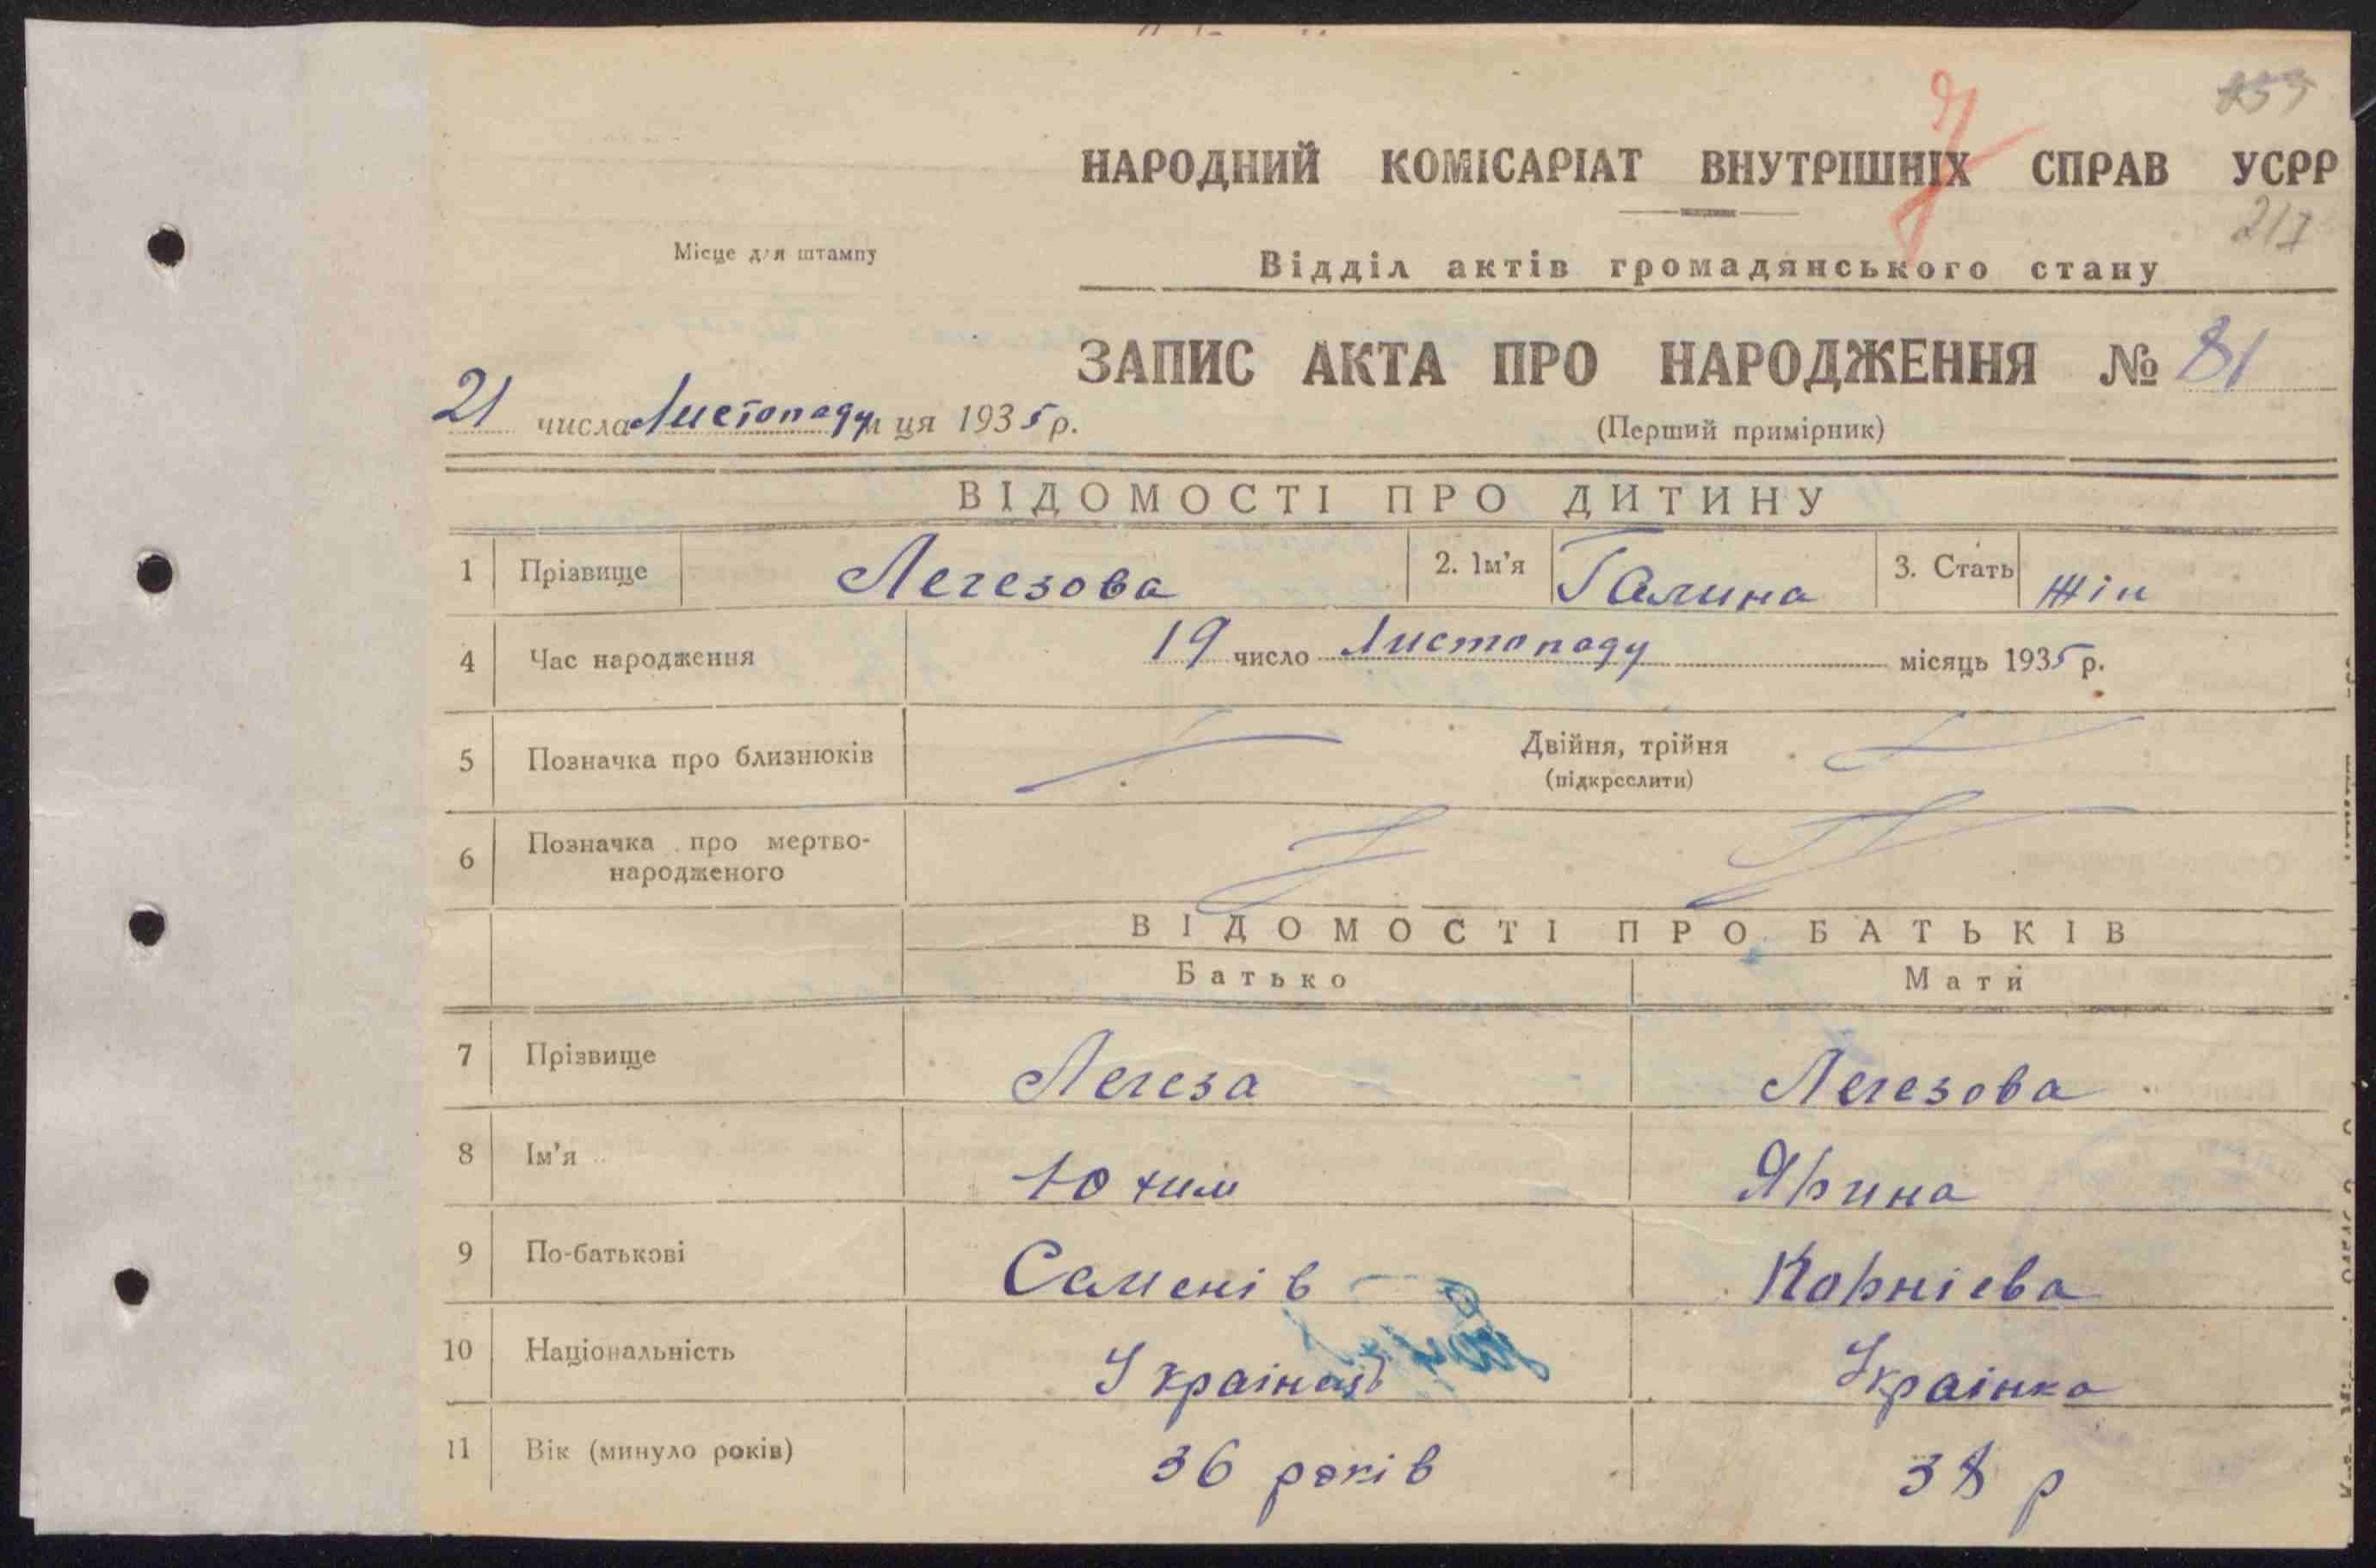 НАРОДНИЙ КОМІСАРІАТ ВНУТРІШНІХ СПРАВ УСРР
217
Місце для штампу
Відділ актів громадянського стану
ЗАПИС АКТА ПРО НАРОДЖЕННЯ № 81
21 числа Листопаду м ця 1935 р.
(Перший примірник)
ВІДОМОСТІ ПРО ДИТИНУ
1 Прізвище Легезова 2. Ім'я Галина 3. Стать жін
4 Час народження 19 число Листопаду місяць 1935 р.
5 Позначка про близнюків Двійня, трійня
(підкреслити)
6 Позначка про мертво-
народженого
ВІДОМОСТІ ПРО БАТЬКІВ
Батько Мати
7 Прізвище Легеза Легезова
8 Ім'я Юхим Ярина
9 По-батькові Семенів Корнієва
10 Національність Українець Українка
11 Вік (минуло років) 36 років 38 р